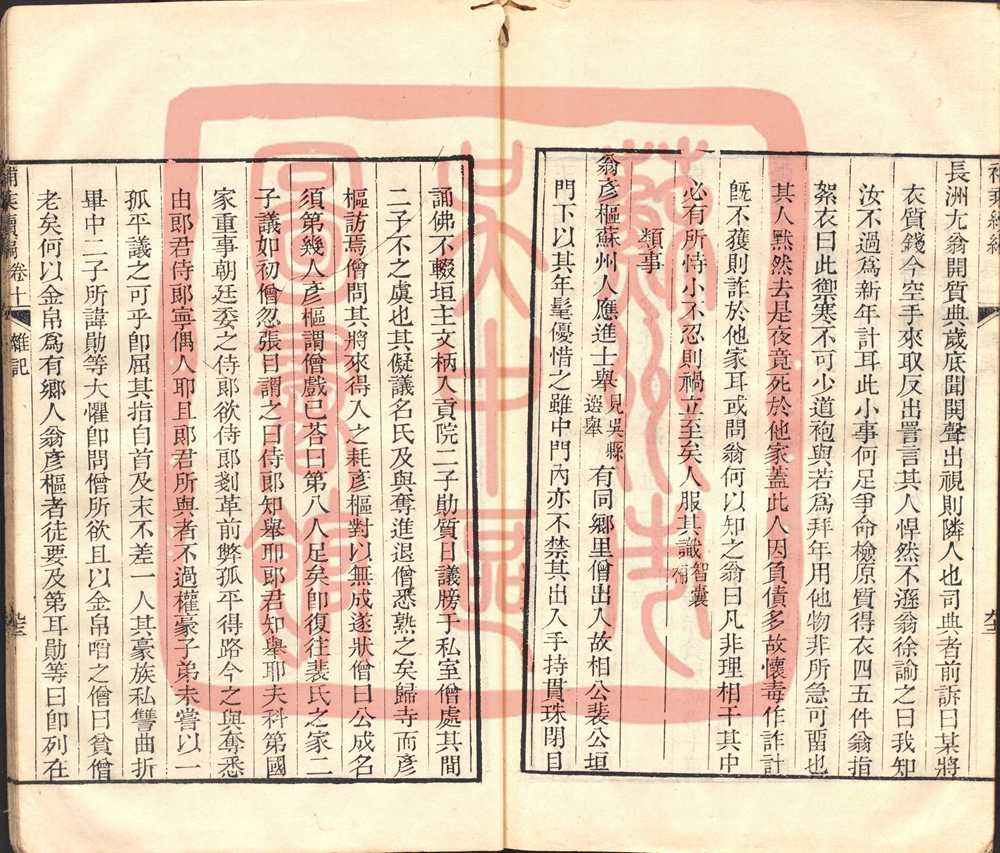 長洲尢翁開質典歲底聞鬨聲出視則隣人也司典者前訴曰某將
衣質錢今空手來取反出詈言其人悍然不遜翁徐諭之曰我知
汝不過爲新年計耳此小事何足爭命檢原質得衣四五件翁指
絮衣曰此禦寒不可少道袍與若爲拜年用他物非所急可畱也
其人默然去是夜竟死於他家蓋此人因負債多故懷毒作詐計
旣不獲則詐於他家耳或問翁何以知之翁曰凡非理相干其中
必有所恃小不忍則禍立至矣人服其識智囊補
類事
翁彥樞蘇州人應進士舉見吳縣選舉有同鄉里僧出入故相公裴公垣
門下以其年髦優惜之雖中門內亦不禁其出入手持貫珠閉目
誦佛不輟垣主文柄入貢院二子勛質日議膀于私室僧處其間
二子不之虞也其儗議名氏及與奪進退僧悉熟之矣歸寺而彥
樞訪焉僧問其將來得入之耗彥樞對以無成遂狀僧曰公成名
須第幾人彥樞謂僧戲已荅曰第八人足矣卽復往裴氏之家二
子議如初僧忽張目謂之曰侍郞知舉耶郞君知舉耶夫科第國
家重事朝廷委之侍郞欲侍郞剗革前弊孤平得路今之與奪悉
由郞君侍郞寧偶人耶且郞君所與者不過權豪子弟未嘗以一
孤平議之可乎卽屈其指自首及末不差一人其豪族私讐曲折
畢中二子所諱勛等大懼卽問僧所欲且以金帛啗之僧曰貧僧
老矣何以金帛爲有鄉人翁彥樞者徒要及第耳勛等曰卽列在
卷十 雜記